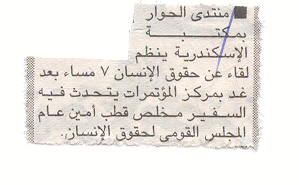 ■ منتدى الحوار
بمكتبة
الإسكندرية ينظم
لقاء عن حقوق الإنسان ٧ مساء بعد
غد بمركز المؤتمرات يتحدث فيه
السفير مخلص قطب أمين عام
المجلس القومى لحقوق الإنسان.